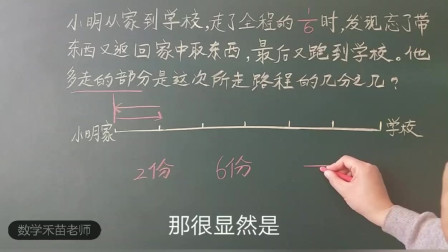 小明从家到学校,走了全程的1/6时,发现忘了带
东西又返回家中取东西,最后又跑到学校。他
多走的部分是这次所走路程的几分之几?
小明家
学校
2份 6份
数学禾苗老师
那很显然是